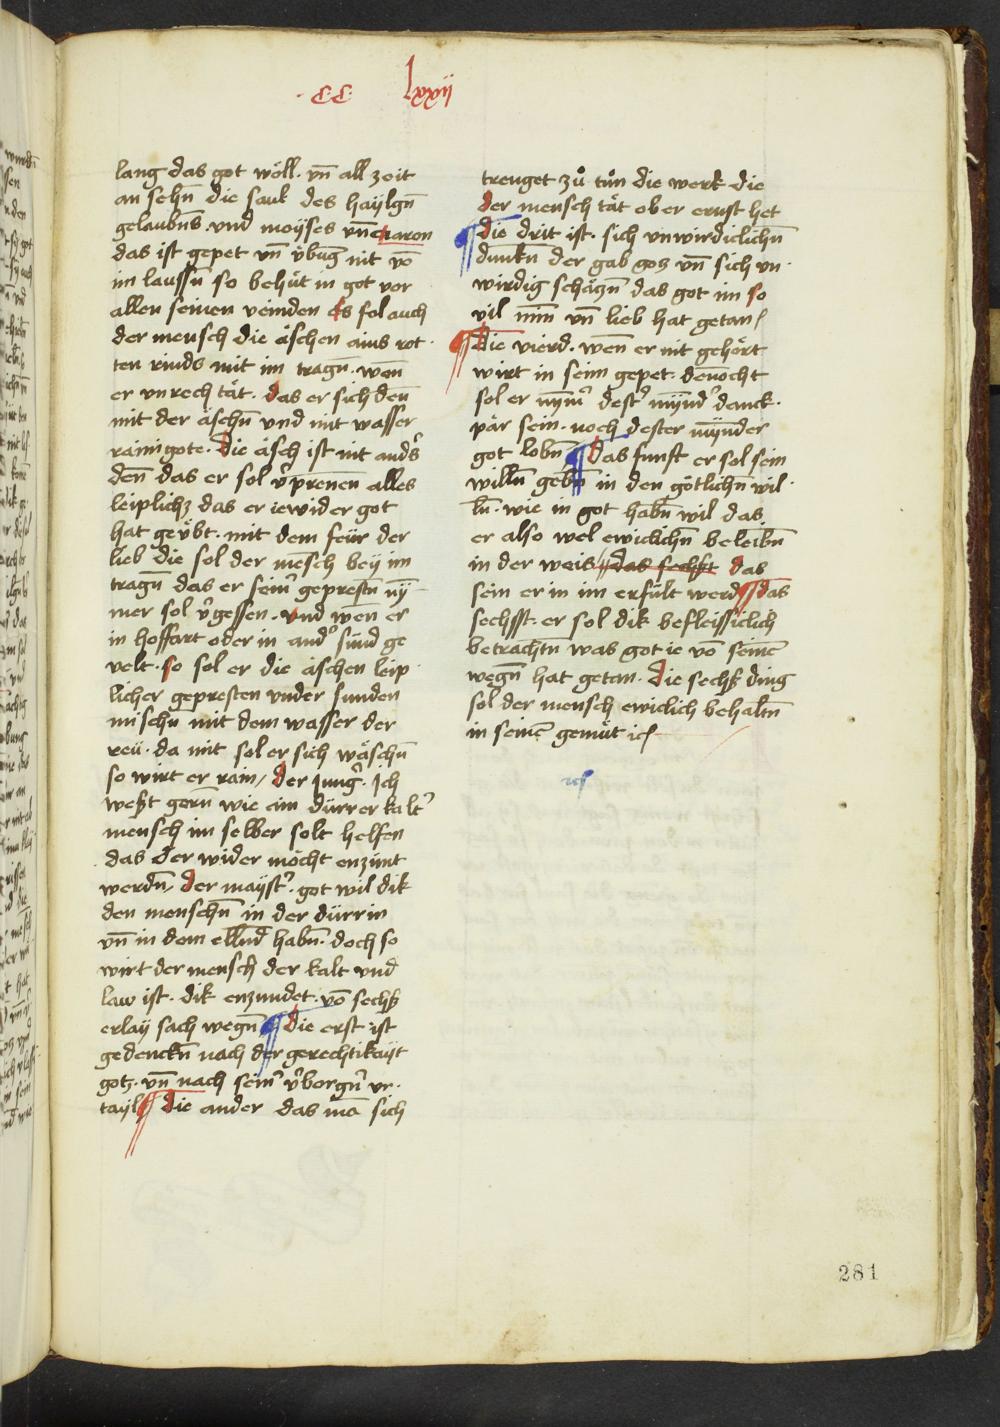 ·CC· lxxij
lang das got wöll · vn̄ all zeit
an sehn̄ die saul des haÿlgn̄
gelaubn̄s · vnd moÿses vn̄ aaron
das ist gepet vn̄ v̈bung nit vō
im laussn̄ so behüt in got vor
allen seinen veinden Es sol auch
der mensch die äschen ains rot
ten rinds mit im tragn̄ · wen̄
er vnrech tät · das er sich den̄
mit der äschn̄ vnd mit wasser
rainigote · Die äsch ist nit and's
den̄ das er sol v'prenen alles
leiplichz das er ie wider got
hat geübt · mit dem feür der
lieb die sol der mēsch beÿ im
tragn̄ das er sein' geprestn̄ nÿ
mer sol v'gessen · vnd wen̄ er
in hoffart oder in and' sünd ge
velt · so sol er die äschen leip
licher gepresten vnder sunden
mischn̄ mit dem wasser der
reü · da mit sol er sich wäschn̄
so wirt er rain / der Jung' · Ich
weßt gern̄ wie eim dürrer kalt'
mensch im selber solt helfen
das der wider möcht enzünt
werdn̄ / der maÿst' · got wil dik
den menschn̄ in der dürr in
vn̄ in dem ellnd habn̄ · doch so
wirt der mensch der kalt vnd
law ist · dik enzundet · vō sechß
erlaÿ sach wegn̄ ¶ Die erst ist
gedenckn̄ nach der gerechtikaÿt
gotz · vn̄ nach sein' v'borgn̄' vr
tayl ¶ Die ander das mā sich
treuget zů tůn die werk die
der mensch tät ob er ernst het
¶ Die drit ist · sich vnwirdiclichn̄
dunkn̄ der gab gotz vn̄ sich vn
wirdig schäzn̄ das got im so
vil min̄ vn̄ lieb hat getan /
¶ Die vierd · wen̄ er nit gehört
wirt in seim gepet · den̄ocht
sol er nÿm' dest' mÿnd' danck
pär sein · noch dester mÿnder
got lobn̄ ¶ Das funft er sol sein
willn̄ gebn̄ in den götlichn̄ wil
ln̄ · wie in got habn̄ wil das
er also wel ewiclichn̄ beleibn̄
in der weis das sechst das
sein er in im erfült werd ¶ das
sechsst · er sol dik befleissiclich
betrachtn̄ was got ie vō seinē
wegn̄ hat getan · Die sechß ding
sol der mensch ewiclich behaltn̄
in seinē gemüt
281